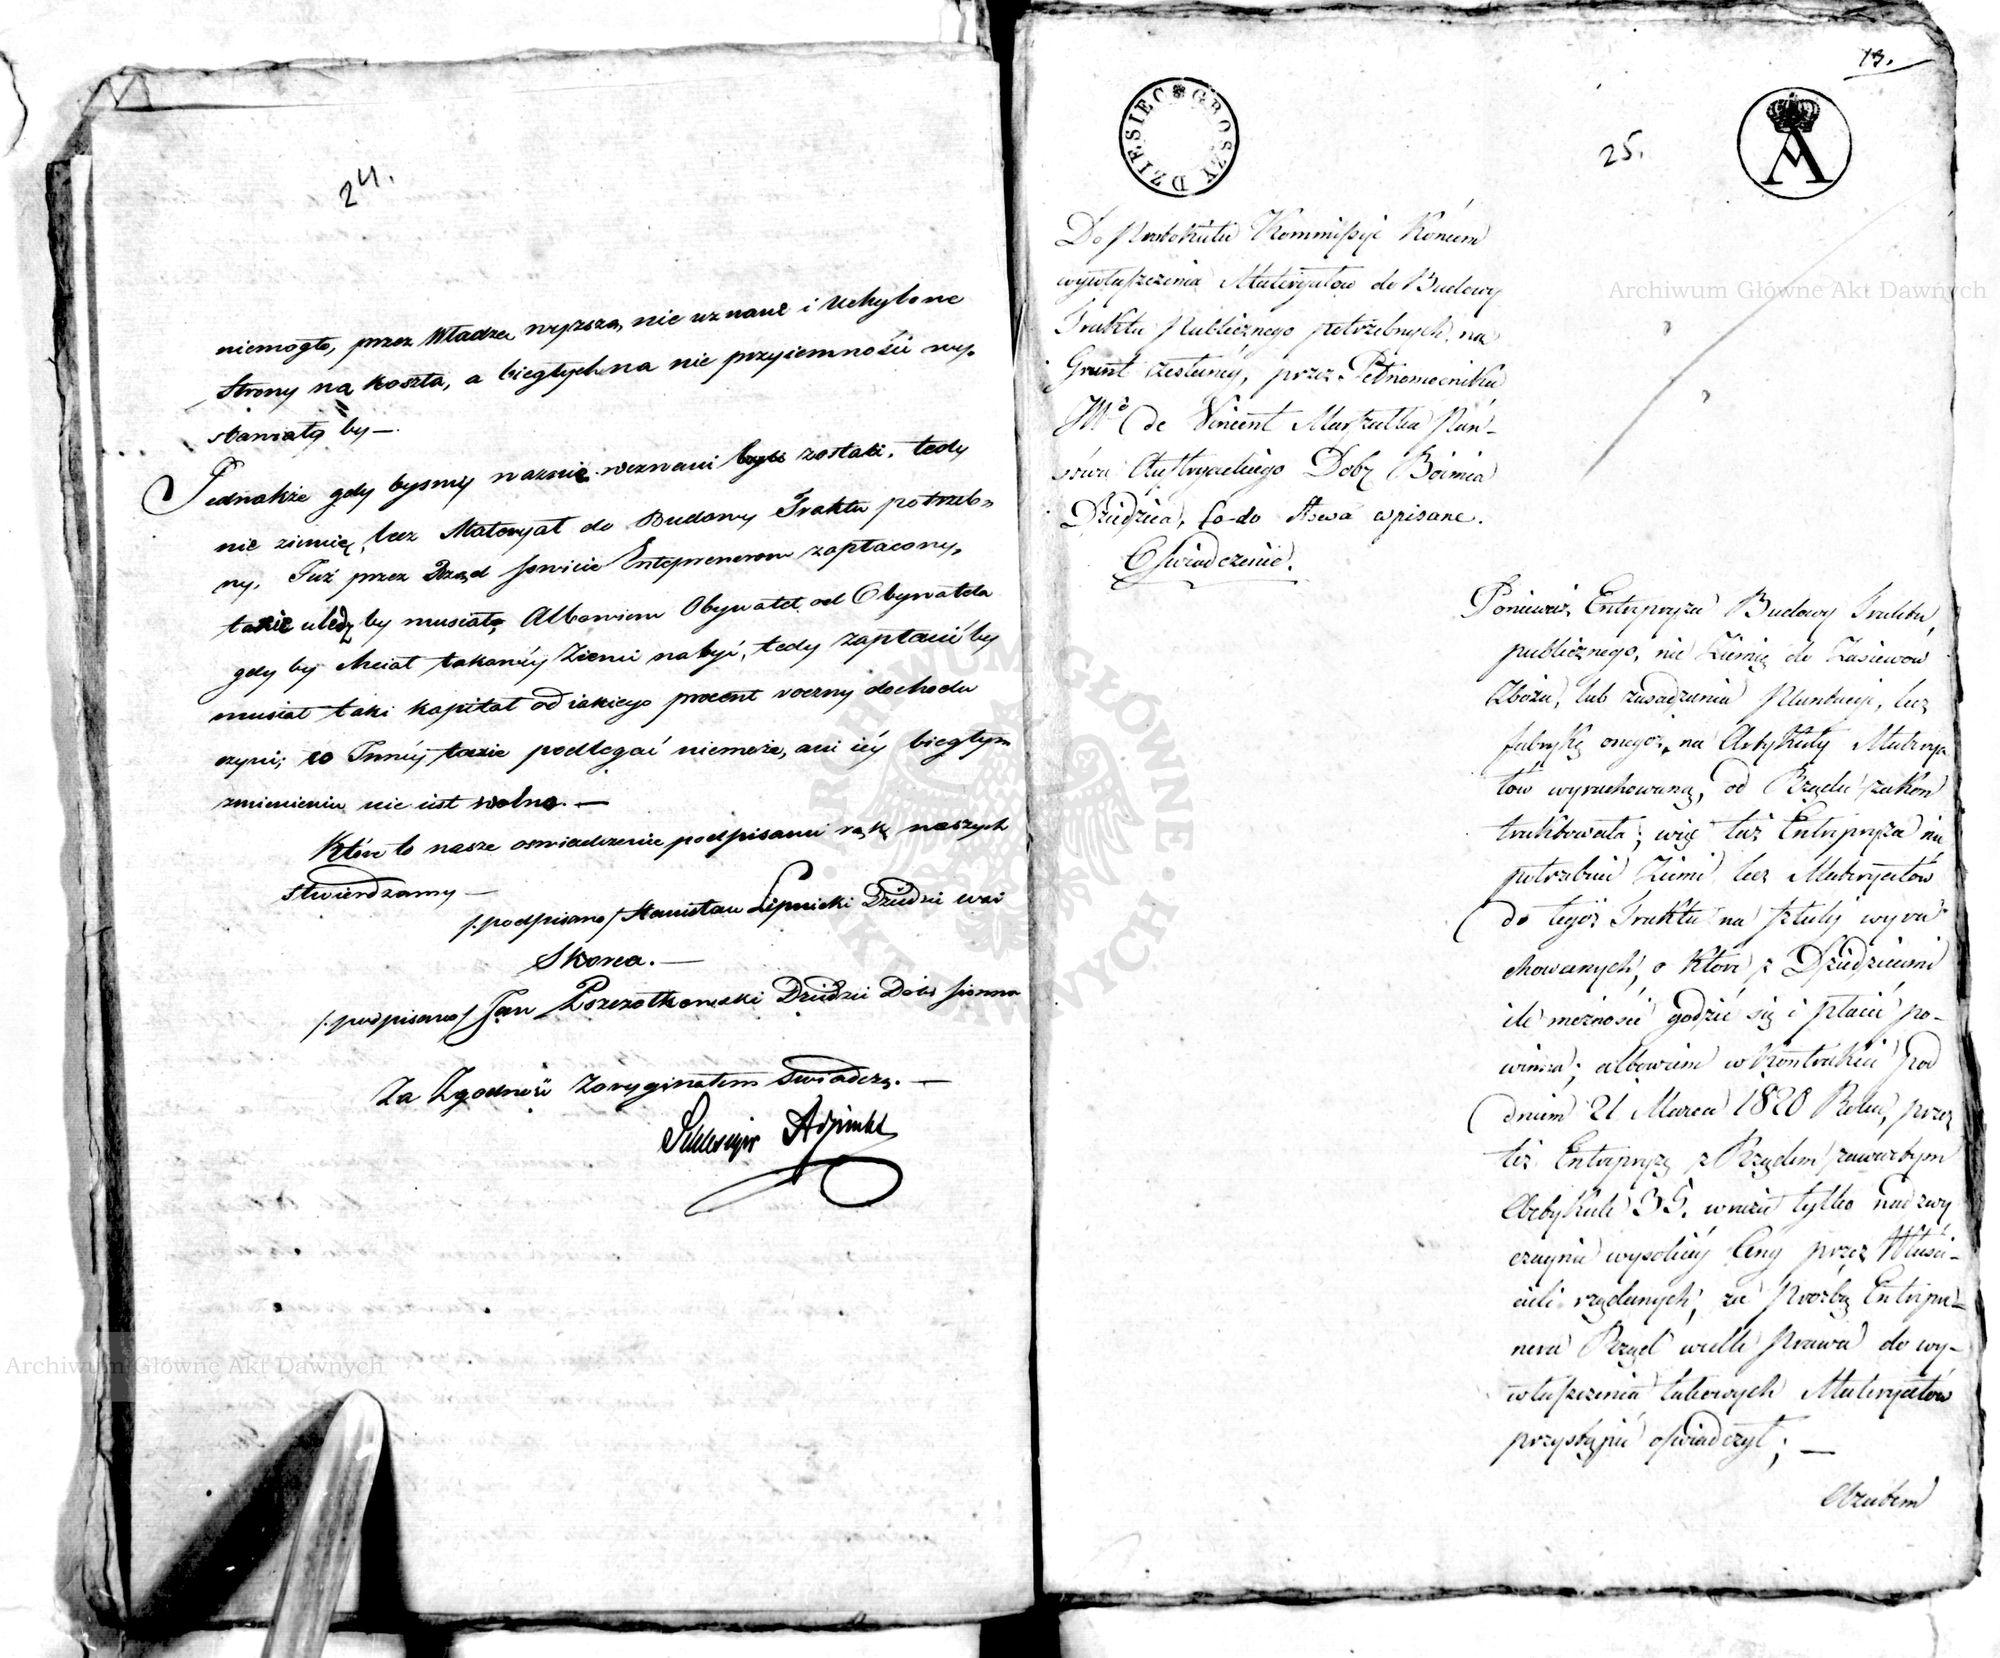 24.
niemogło, przez Władzę wyższą, nie uznane i uchylone
Strony na koszta, a biegłych na nie przyiemności wy-
stawiało by —
Jednakże gdy byśmy ważnie wezwani być zostali, tedy
nie ziemię, lecz Materyał do Budowy Traktu potrzeb-
ny, Już przez Rząd sowicie Entreprenerom zapłacony,
taxie uledz by musiało, Albowiem Obywatel od Obywatela
gdy by chciał takowéy Ziemi nabyć, tedy zapłacić by
musiał taki kapitał od iakiego procent roczny dochodu
czyni; co Innéy taxie podlegać niemoże, ani iéy biegłym
zmienienia nie iest wolno. —
Które to nasze oswiadczenie podpisami rąk naszych
stwierdzamy —
/:podpisano/ Stanisław Lipnicki Dziedzic wsi
Skorca. —
/:podpisano/ Jan Pszczołkowski Dziedzic Dóbr
Za Zgodność Zoryginałem Swiadczę. —
Adjunkt
13.
DZIESIEC GROSZY
25.
A
Do Protokułu Kommissyi Końcem
wywłaszczenia Materyałow do Budowy
Traktu Publicznego potrzebnych, na
Grunt zesłanéy, przez Pełnomocnika
de Vincent Marszałka Pań-
stwa Austryackiego Dobr Boimia
Dziedzica, Co-do Słowa wpisane.
Oswiadczenie.
Ponieważ Entrepryza Budowy Traktu
publicznego, nie Ziemię do Zasiewow
Zboża, lub zasadzenia Plantacyi, lecz
fabrykę onegoż, na Artykuły Materya-
łów wyrachowaną, od Rządu zakon
traktowała; więc też Entrepryza nie
potrzebuie Ziemi lecz Materyałów
do tegoż Traktu na sztuki wyra-
chowanych, o które z Dziedzicami
ile możności godzić się i płacić po-
winna; albowiem w kontrakcie pod
dniem 21 Marca 1820 Roku, przez
też Entrepryzę z Rządem zawartym
Artykule 35. wrazie tylko nadzwy
czaynie wysokiéy Ceny przez Właści-
cieli rządanych, za Proźbą Entrepre-
nera Rząd wedle Prawa do wy-
właszczenia takowych Materyałów
przystąpić oswiadczył; —
Azatem
Archiwum Główne Akt Dawnych
Archiwum Główne Akt Dawnych
ARCHIWUM GŁÓWNE AKT DAWNYCH